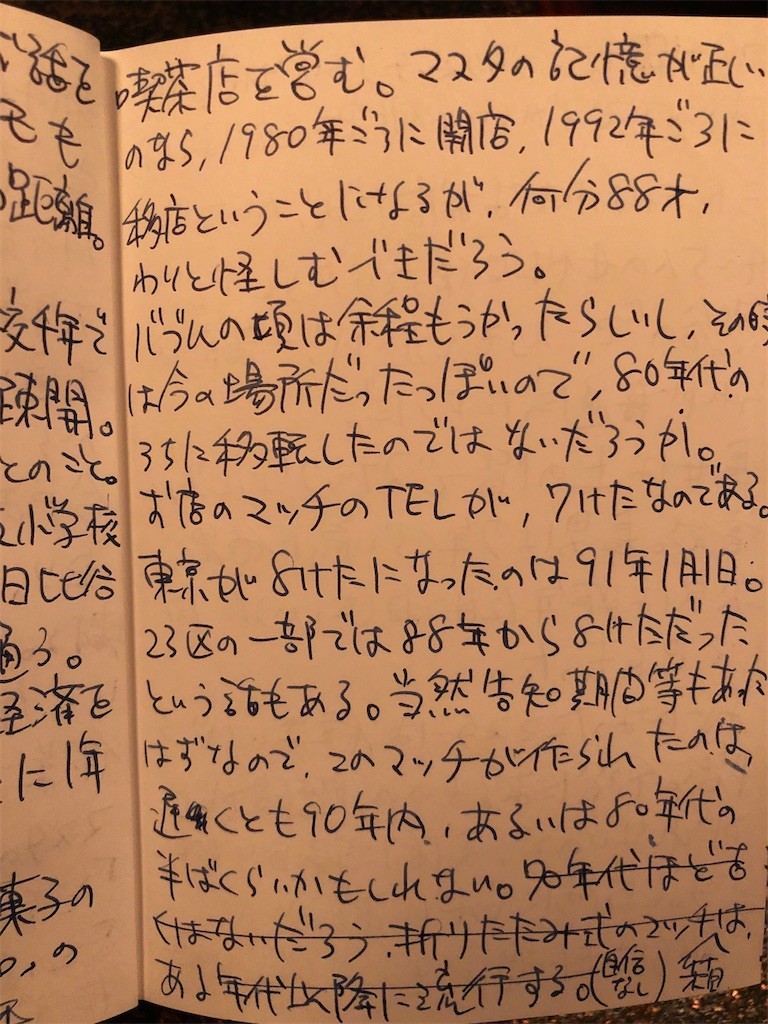 話を
モも
距離。
交年で
疎開。
とのこと。
小学校
日比谷
通う。
経済を
に1年
菓子の
の
喫茶店を営む。マスタの記憶が正しい
のなら,1980年ごろに開店,1992年ごろに
移店ということになるが,何分88才,
わりと怪しむべきだろう。
バブルの頃は余程もうかったらしいし,その時
は今の場所だったっぽいので,80年代の
うちに移転したのではないだろうか。
お店のマッチのTELが,7けたなのである。
東京が8けたになったのは91年1月1日。
23区の一部では88年から8けただった
という話もある。当然告知期間等もあった
はずなので,このマッチが作られたのは,
遅くとも90年内,あるいは80年代の
半ばくらいかもしれない。90年代ほど古
くはないだろう,折りたたみ式のマッチは,
年代以降に流行する。(自信なし)